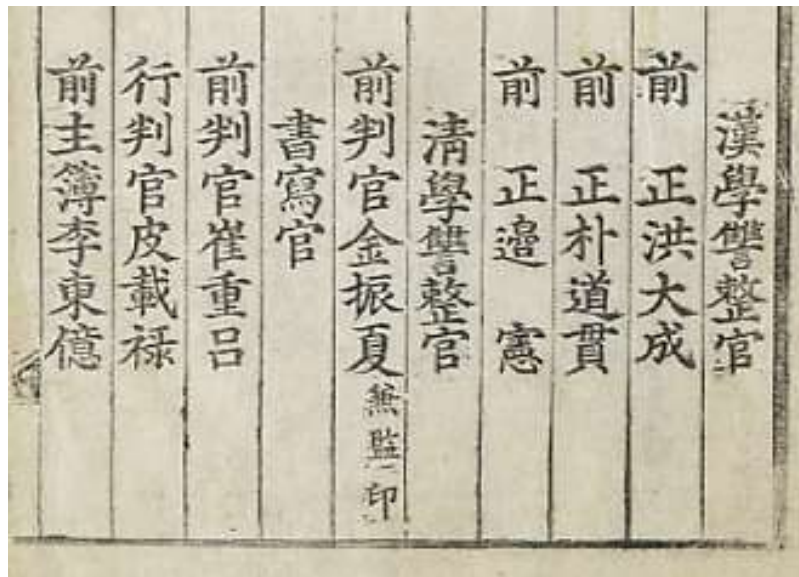 漢學讐整官
前 正洪大成
前 正朴道貫
前 正邉 憲
淸學讐整官
前判官金振夏無監印
書寫官
前判官崔重呂
行判官皮載禄
前主簿李東億